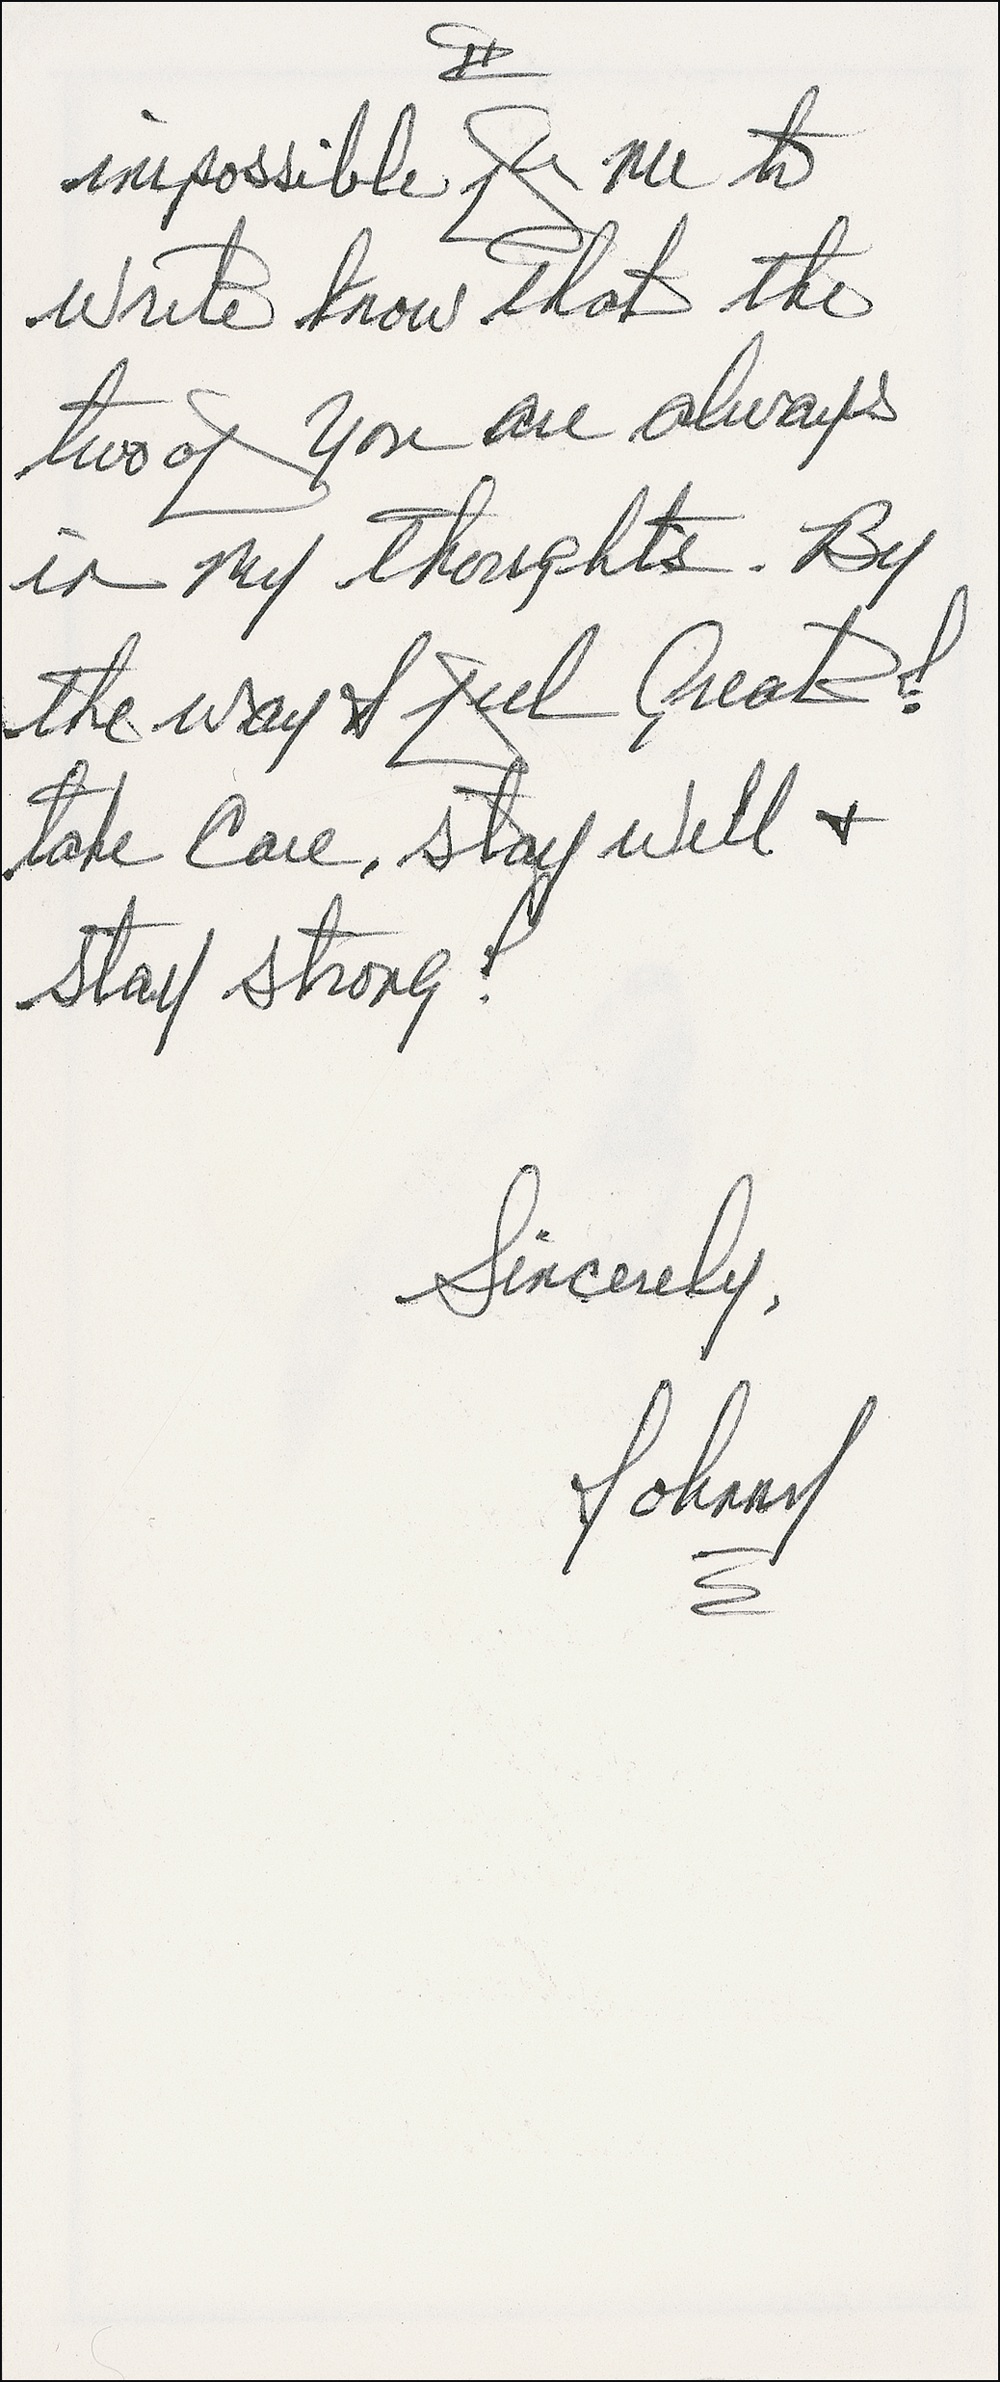 II
impossible for me to
write know that the
two of you are always
in my thoughts. By
the way I feel Great!
take Care, stay well +
stay strong!
Sincerely,
Johnny